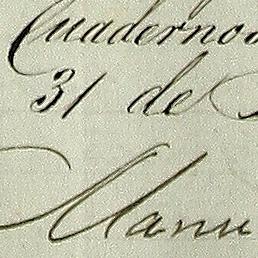 Cuadernos
31 de
Manu